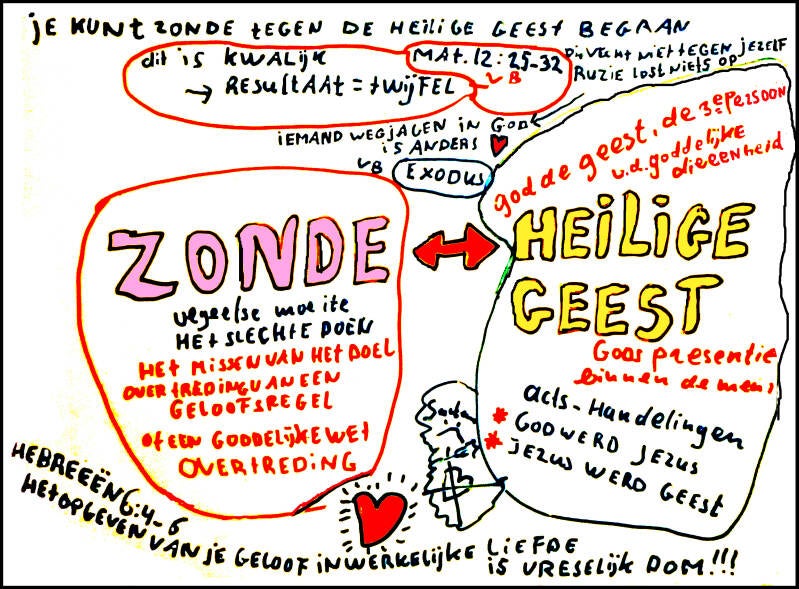 JE KUNT ZONDE TEGEN DE HEILIGE GEEST BEGAAN
dit is KWALIJK
→ RESULTAAT = TWIJFEL
MAT. 12 : 25-32
B
DUS VECHT NIET TEGEN JEZELF
RUZIE LOST NIETS OP
IEMAND WEGJAGEN IN GOD
IS ANDERS
B EXODUS
god de geest, de 3e PERSOON
v.d. goddelijke
drieeenheid
ZONDE
HEILIGE
GEEST
vergeefse moeite
HET SLECHTE DOEN
HET MISSEN VAN HET DOEL
OVERTREDING VAN EEN
GELOOFSREGEL
OF EEN GODDELIJKE WET
OVERTREDING
GODS presentie
binnen de mens
acts - Handelingen
* GOD WERD JEZUS
* JEZUS WERD GEEST
HEBREEËN 6:4-6
HET OPGEVEN VAN JE GELOOF IN WERKELIJKE LIEFDE
IS VRESELIJK DOM!!!